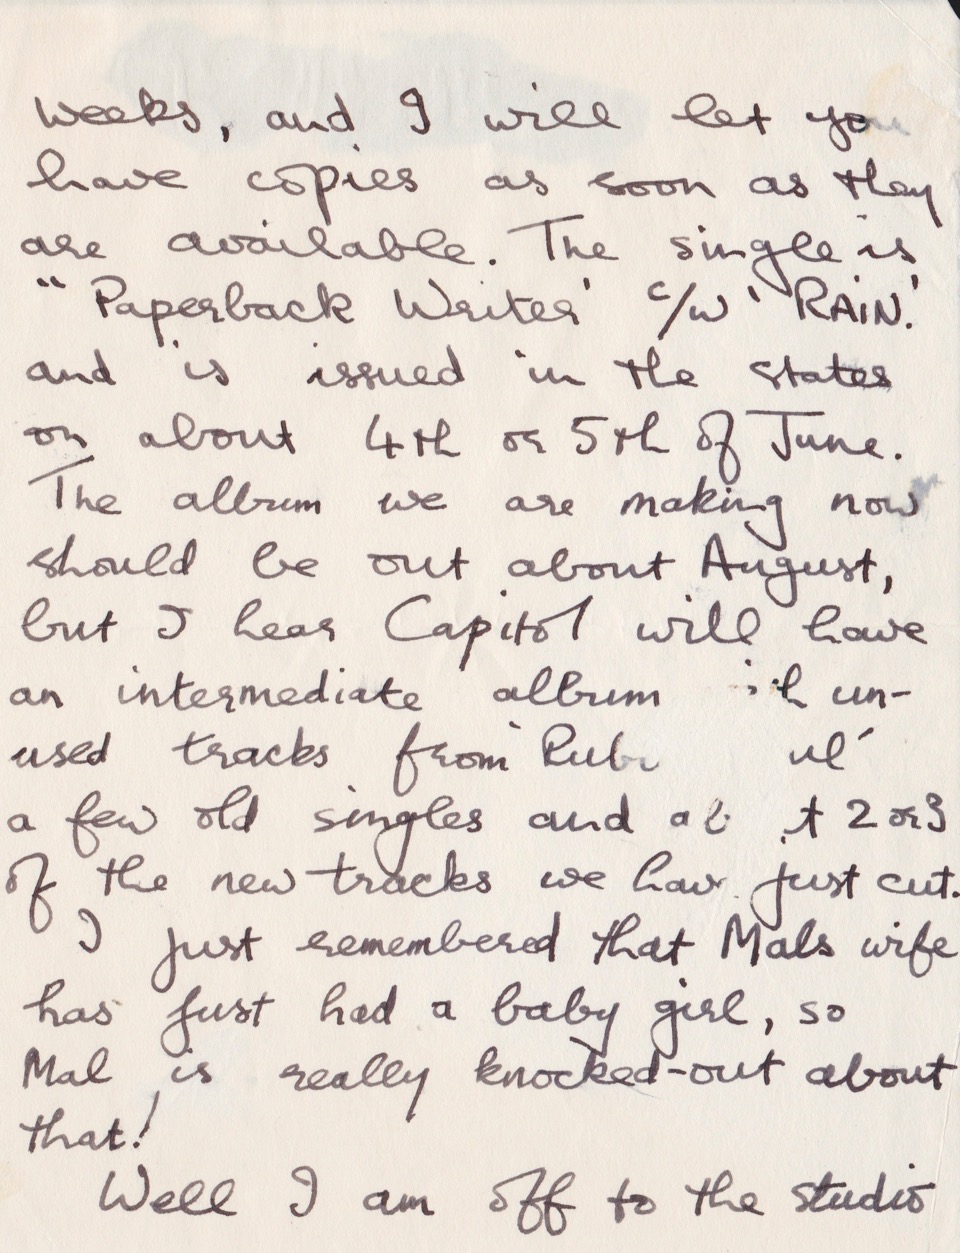 weeks, and I will let you
have copies as soon as they
are available. The single is
"Paperback Writer' c/w 'RAIN.'
and is issued in the states
on about 4th or 5th of June.
The album we are making now
should be out about August,
but I hear Capitol will have
an intermediate album un-
used tracks from
a few old singles and 2 or 3
of the new tracks we hav just cut.
I just remembered that Mals wife
has just had a baby girl, so
Mal is really knocked-out about
that!
Well I am off to the studio